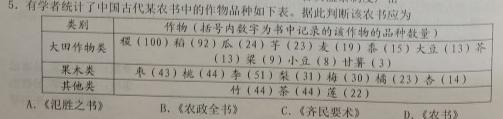 5. 有学者统计了中国古代某农书中的作物品种如下表。据此判断该农书应为
类别 作物（括号内数字为书中记录的该作物的品种数量）
大田作物类 稷（100）稻（92）瓜（24）芋（23）麦（19）黍（15）大豆（13）芥
（13）粱（9）小豆（8）甘薯（3）
果木类 枣（43）桃（44）李（51）梨（31）梅（30）橘（23）杏（14）
其他类 竹（44）茶（44）莲（22）
A.《氾胜之书》 B.《农政全书》 C.《齐民要术》 D.《农书》